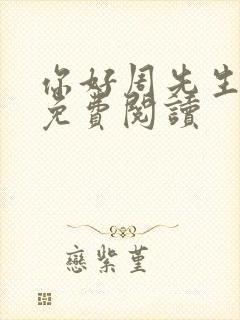 你好周先生
免費閱讀
戀紫堇